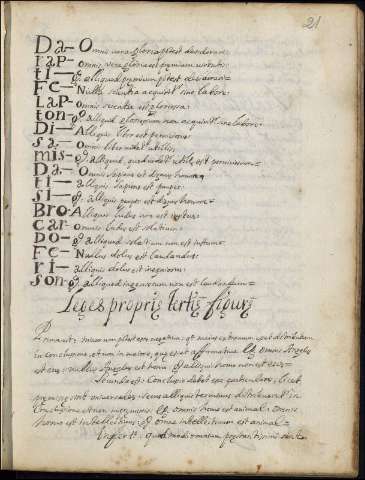 21
Da- Omnis vera gloria potest desiderari
rap- omnis vera gloria est premium virtutis
ti- g. aliquod premium potest desiderari
Fe- Nulla scientia acquirit. sine labore
Lap- omnis scientia est gloriosa
ton- g. aliquod gloriosum non acquirit. sine labore
Di- Aliquis liber est perniciosus
sa- omnis liber est utilis
mis- g. aliquid quod est utile est perniciosum
Da- Omnis sapiens est dignus honore
ti- aliquis sapiens est pauper
si- g. aliquis pauper est dignus honore
Bro- Aliquis ludus non est
car- omnis ludus est solatium
do- g. aliquod solatium non est
Fe- Nullus dolus est laudandus
ri- aliquis dolus est ingeniosus
son- g. aliquod ingeniosum non est laudandum
Leges propriȩ tertiȩ figurȩ
Prima est: minor non potest esse negativa; et maior extremum est distributum
in conclusione, et non in maiore, quȩ esset affirmativa. Omnis Angelus
est ens: nullus Angelus est homo g. aliquis homo non est ens
Secunda est: Conclusio debet esse particularis; licet
premissȩ sint universales: secus aliquis terminus distribueret. in
Conclusione et non in premissis. omnis homo est animal: omnis
homo est intellectivus: g. omne intellectivum est animal